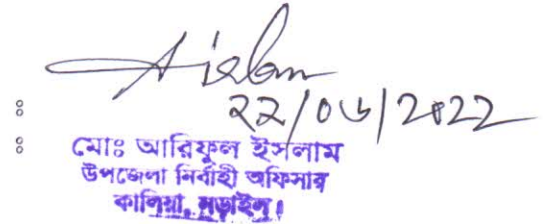 ঃ
২২/০৬/2022
ঃ
মোঃ আরিফুল ইসলাম
উপজেলা নির্বাহী অফিসার
কালিয়া, নড়াইল।